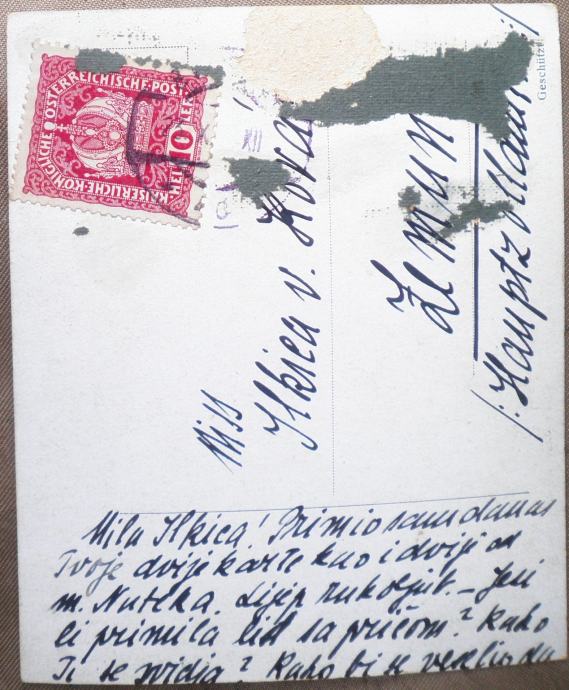 KAISERLICHE KÖNIGLICHE ÖSTERREICHISCHE POST
10 HELLER
XII
Geschützt.
Miss
Ilkica v. Kova
Zemun
/: Hauptzollamt :/
Mila Ilkica! Primio sam danas
Tvoje dvije karte kao i dvije od
m. Lijep rukoljub. – Jesi
li primila list sa pričom? Kako
Ti se svidja? Kako bi se veselio da